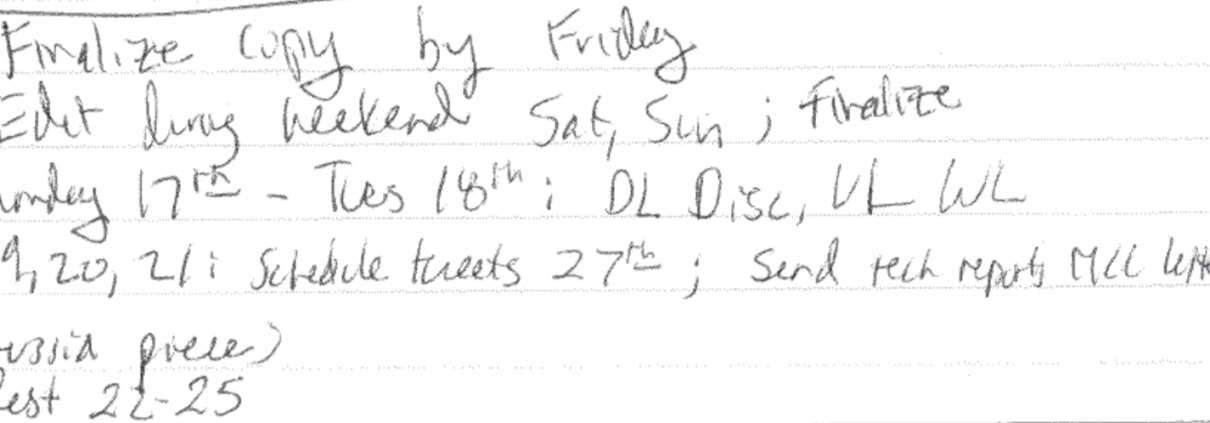 Finalize copy by Friday
Edit during weekend Sat, Sun; Finalize
17th - Tues 18th: DL Disc, VL WL
9, 20, 21: Schedule tweets 27th; Send tech reports MCC
ussia piece)
est 22-25